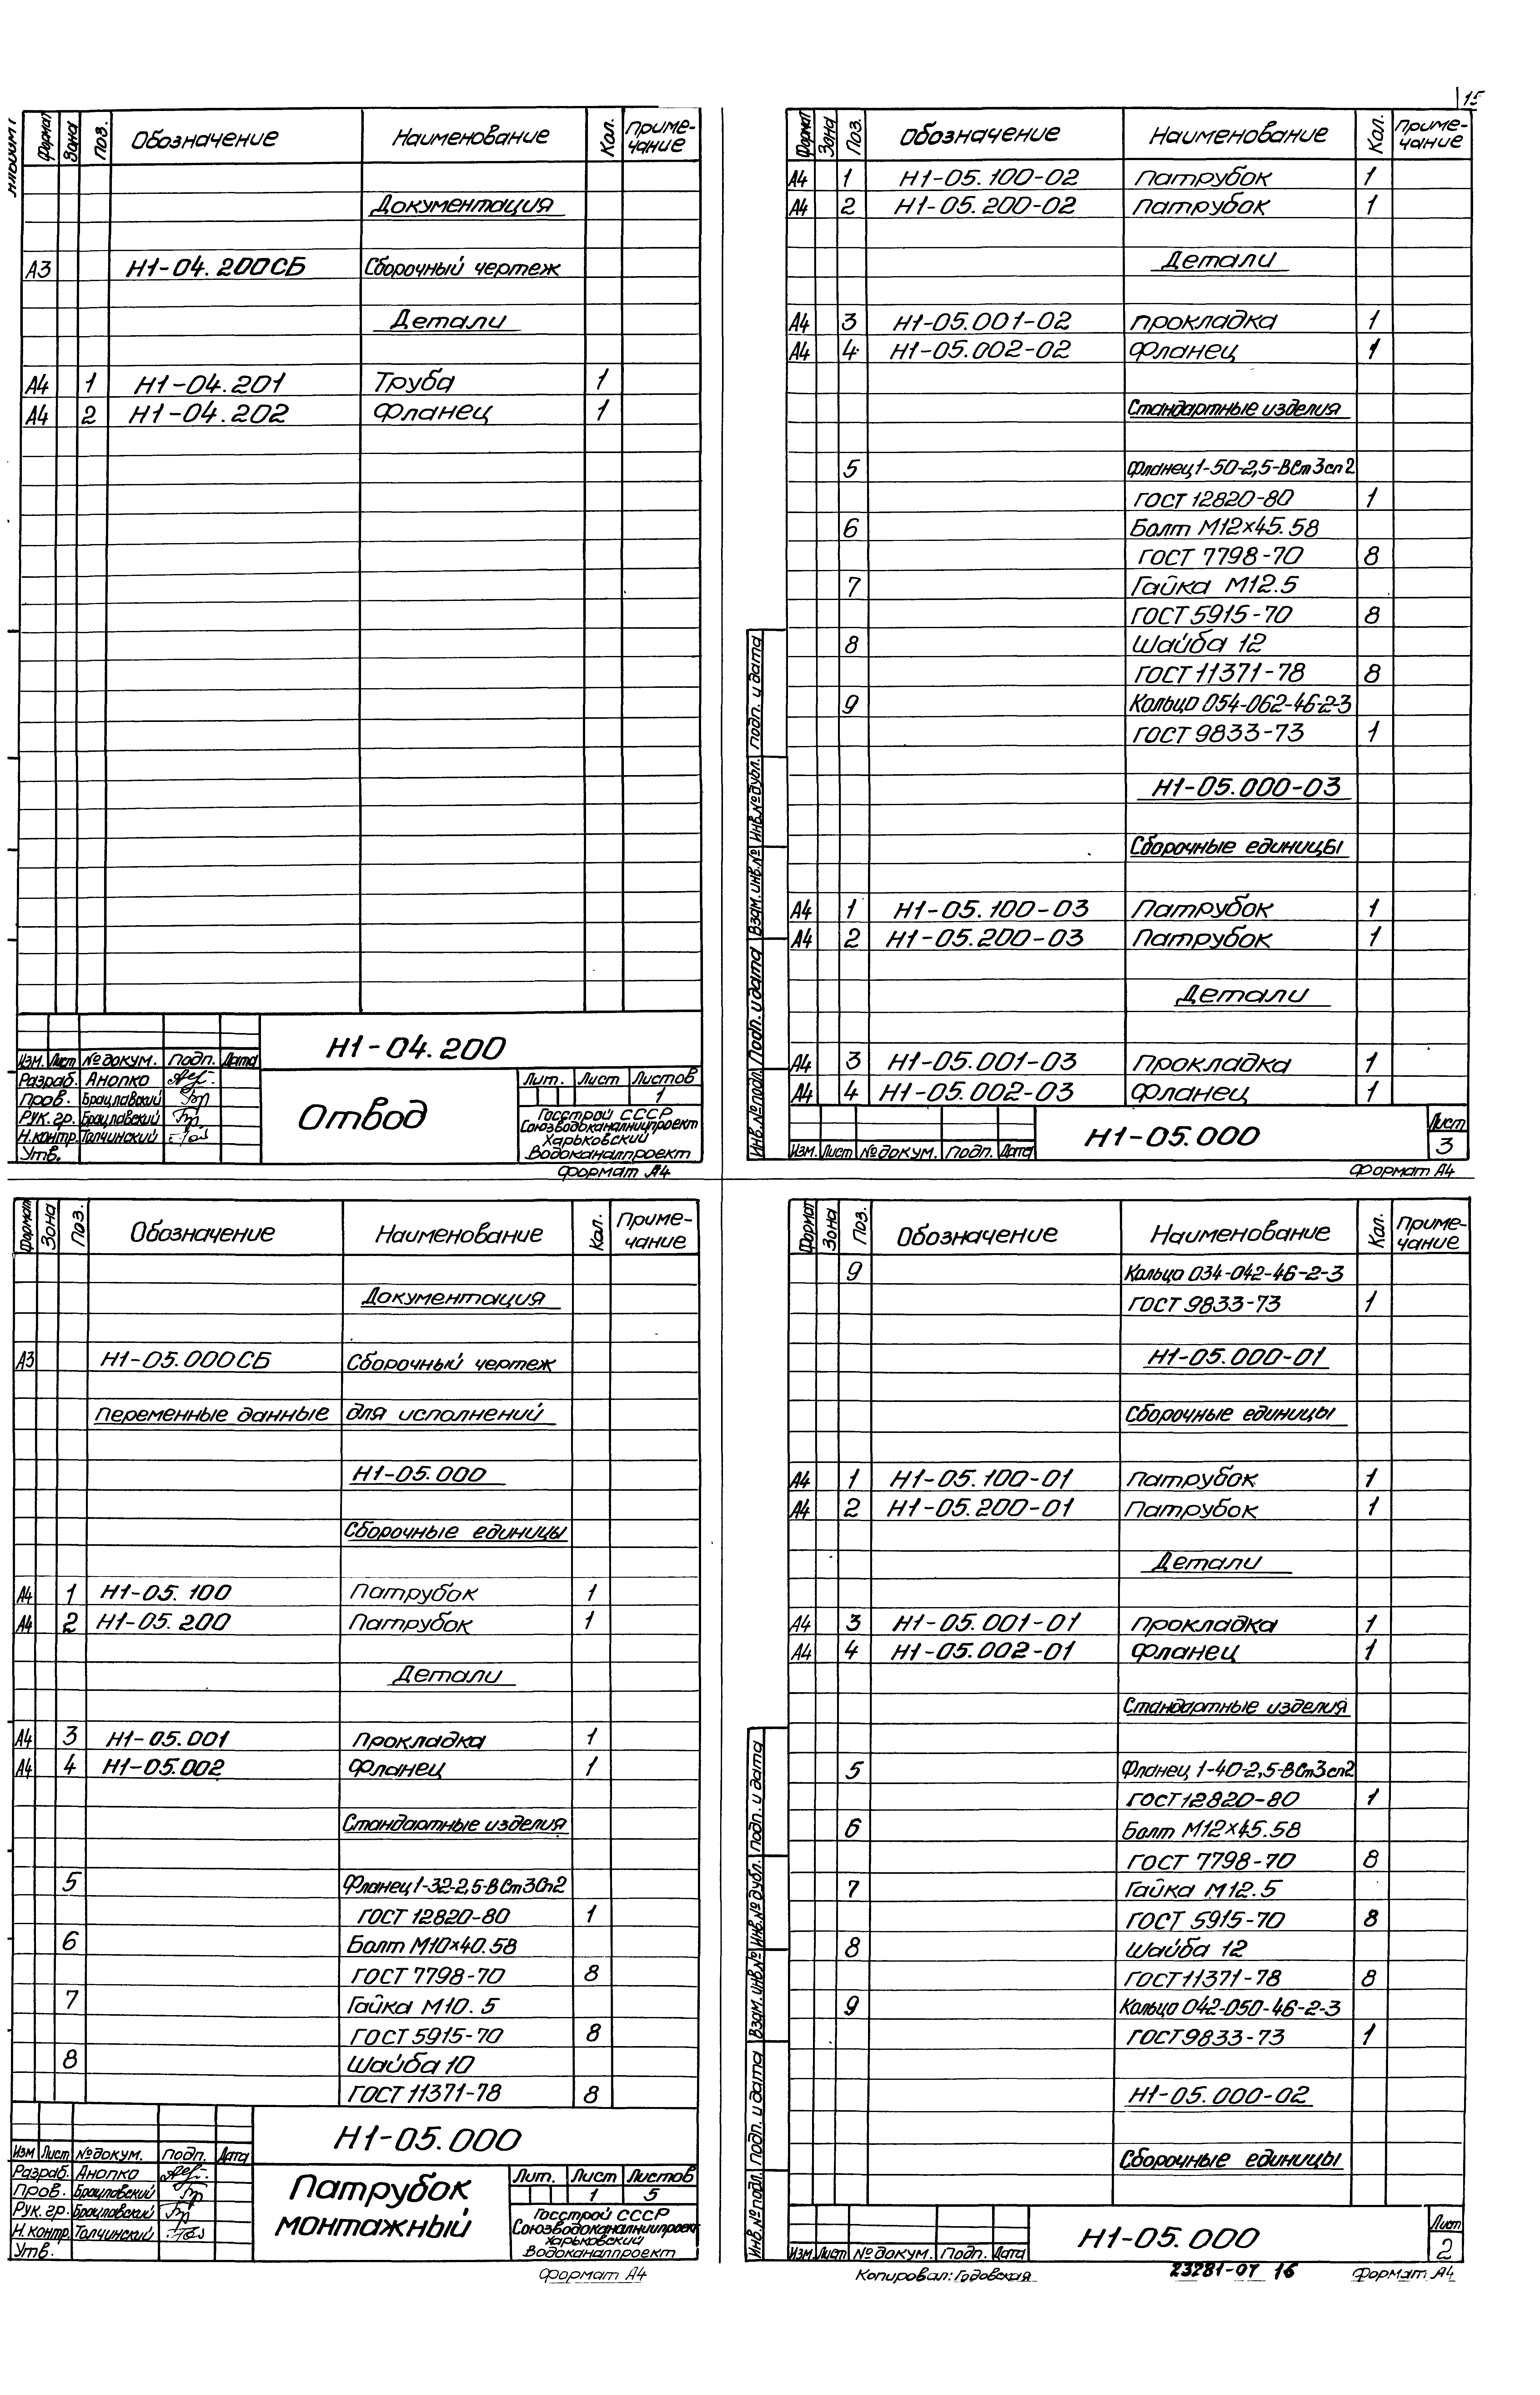 15
Формат Зона Поз. Обозначение Наименование Кол. Приме-
чание
Документация
А3 Н1-04.200СБ Сборочный чертеж
Детали
А4 1 Н1-04.201 Труба 1
А4 2 Н1-04.202 Фланец 1
Н1-04.200
Изм. Лист № докум. Подп. Дата
Разраб. Анопко
Пров. Брацлавский
Рук. гр. Брацлавский
Н.контр. Толчинский
Утв.
Отвод
Лит. Лист Листов
1
Госстрой СССР
Союзводоканалниипроект
Харьковский
Водоканалпроект
Формат А4
Формат Зона Поз. Обозначение Наименование Кол. Приме-
чание
А4 1 Н1-05.100-02 Патрубок 1
А4 2 Н1-05.200-02 Патрубок 1
Детали
А4 3 Н1-05.001-02 Прокладка 1
А4 4 Н1-05.002-02 Фланец 1
Стандартные изделия
5 Фланец 1-50-2,5-ВСт3сп2
ГОСТ 12820-80 1
6 Болт М12×45.58
ГОСТ 7798-70 8
7 Гайка М12.5
ГОСТ 5915-70 8
8 Шайба 12
ГОСТ 11371-78 8
9 Кольцо 054-062-46-2-3
ГОСТ 9833-73 1
Н1-05.000-03
Сборочные единицы
А4 1 Н1-05.100-03 Патрубок 1
А4 2 Н1-05.200-03 Патрубок 1
Детали
А4 3 Н1-05.001-03 Прокладка 1
А4 4 Н1-05.002-03 Фланец 1
Инв.№ подл. Подп. и дата Взам. инв.№ Инв.№ дубл. Подп. и дата
Изм. Лист № докум. Подп. Дата
Н1-05.000
Лист
3
Формат А4
Формат Зона Поз. Обозначение Наименование Кол. Приме-
чание
Документация
А3 Н1-05.000СБ Сборочный чертеж
Переменные данные для исполнений
Н1-05.000
Сборочные единицы
А4 1 Н1-05.100 Патрубок 1
А4 2 Н1-05.200 Патрубок 1
Детали
А4 3 Н1-05.001 Прокладка 1
А4 4 Н1-05.002 Фланец 1
Стандартные изделия
5 Фланец 1-32-2,5-ВСт3Сп2
ГОСТ 12820-80 1
6 Болт М10×40.58
ГОСТ 7798-70 8
7 Гайка М10.5
ГОСТ 5915-70 8
8 Шайба 10
ГОСТ 11371-78 8
Н1-05.000
Изм Лист № докум. Подп. Дата
Разраб. Анопко
Пров. Брацлавский
Рук. гр. Брацлавский
Н.контр. Толчинский
Утв.
Патрубок
монтажный
Лит. Лист Листов
1 5
Госстрой СССР
Союзводоканалниипроект
Харьковский
Водоканалпроект
Формат А4
Формат Зона Поз. Обозначение Наименование Кол. Приме-
чание
9 Кольцо 034-042-46-2-3
ГОСТ 9833-73 1
Н1-05.000-01
Сборочные единицы
А4 1 Н1-05.100-01 Патрубок 1
А4 2 Н1-05.200-01 Патрубок 1
Детали
А4 3 Н1-05.001-01 Прокладка 1
А4 4 Н1-05.002-01 Фланец 1
Стандартные изделия
5 Фланец 1-40-2,5-ВСт3сп2
ГОСТ 12820-80 1
6 Болт М12×45.58
ГОСТ 7798-70 8
7 Гайка М12.5
ГОСТ 5915-70 8
8 Шайба 12
ГОСТ 11371-78 8
9 Кольцо 042-050-46-2-3
ГОСТ 9833-73 1
Н1-05.000-02
Сборочные единицы
Инв.№ подл. Подп. и дата Взам. инв.№ Инв.№ дубл. Подп. и дата
Изм. Лист № докум. Подп. Дата
Н1-05.000
Лист
2
Копировал: Годовская
23281-07 16
Формат А4